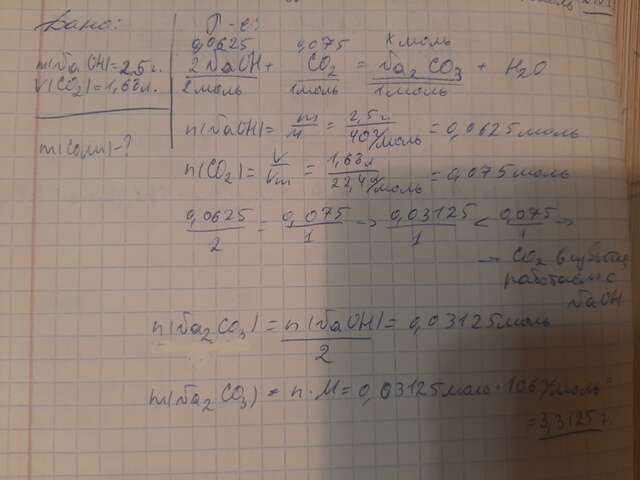 Дано:
Р-е:
0,0625 0,075 x моль
m(NaOH)=2,5г.
2NaOH + CO2 = Na2CO3 + H2O
V(CO2)=1,68л.
2моль 1моль 1моль
m(соли)-?
n(NaOH)= m/M = 2,5г/40г/моль = 0,0625моль
n(CO2)= V/Vm = 1,68л/22,4л/моль = 0,075моль
0,0625/2 = 0,075/1 → 0,03125/1 < 0,075/1 →
→ CO2 в избытке,
работаем с
NaOH
n(Na2CO3) = n(NaOH)/2 = 0,03125моль
m(Na2CO3) = n·M = 0,03125моль·106г/моль=
=3,3125г